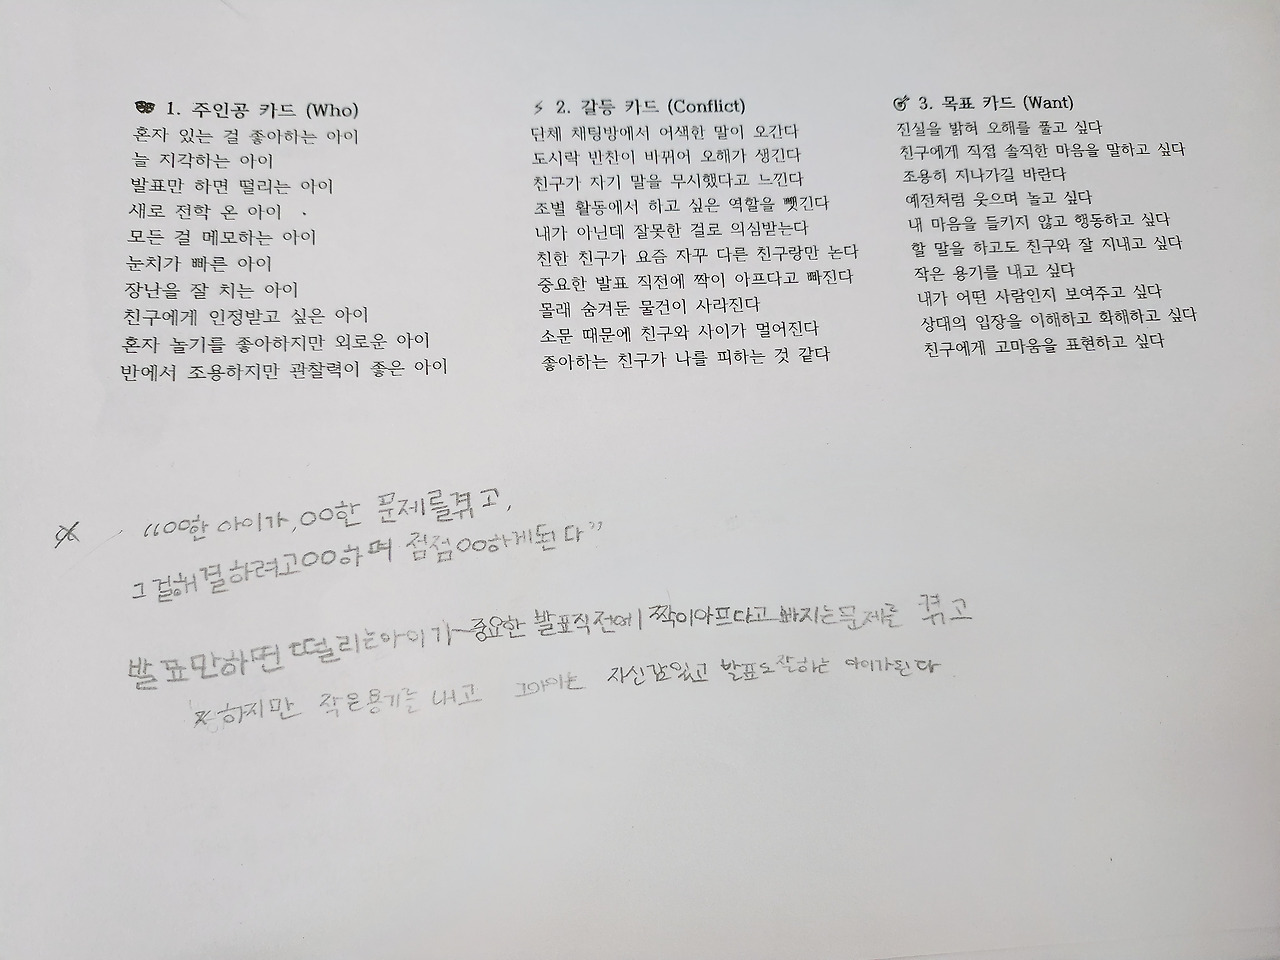 1. 주인공 카드 (Who)
혼자 있는 걸 좋아하는 아이
늘 지각하는 아이
발표만 하면 떨리는 아이
새로 전학 온 아이
모든 걸 메모하는 아이
눈치가 빠른 아이
장난을 잘 치는 아이
친구에게 인정받고 싶은 아이
혼자 놀기를 좋아하지만 외로운 아이
반에서 조용하지만 관찰력이 좋은 아이
⚡ 2. 갈등 카드 (Conflict)
단체 채팅방에서 어색한 말이 오간다
도시락 반찬이 바뀌어 오해가 생긴다
친구가 자기 말을 무시했다고 느낀다
조별 활동에서 하고 싶은 역할을 뺏긴다
내가 아닌데 잘못한 걸로 의심받는다
친한 친구가 요즘 자꾸 다른 친구랑만 논다
중요한 발표 직전에 짝이 아프다고 빠진다
몰래 숨겨둔 물건이 사라진다
소문 때문에 친구와 사이가 멀어진다
좋아하는 친구가 나를 피하는 것 같다
3. 목표 카드 (Want)
진실을 밝혀 오해를 풀고 싶다
친구에게 직접 솔직한 마음을 말하고 싶다
조용히 지나가길 바란다
예전처럼 웃으며 놀고 싶다
내 마음을 들키지 않고 행동하고 싶다
할 말을 하고도 친구와 잘 지내고 싶다
작은 용기를 내고 싶다
내가 어떤 사람인지 보여주고 싶다
상대의 입장을 이해하고 화해하고 싶다
친구에게 고마움을 표현하고 싶다
“OO한 아이가, OO한 문제를 겪고,
그걸 해결하려고 OO하며 점점 OO하게 된다”
발표만하면 떨리는아이가 중요한 발표직전에 짝이아프다고 빠지는문제를 겪고
하지만 작은용기를 내고 자신감있고 발표도잘하는 아이가된다